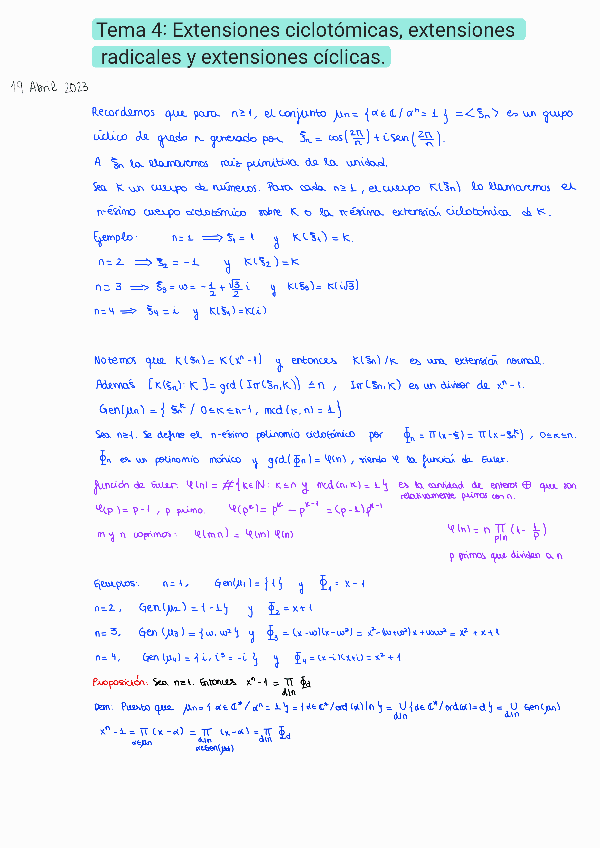 Tema 4: Extensiones ciclotómicas, extensiones
radicales y extensiones cíclicas.
19 Abril 2023
Recordemos que para n≥1, el conjunto μn = {α∈ℂ / αⁿ = 1} = <ξn> es un grupo
cíclico de grado n generado por ξn = cos(2π/n) + i sen(2π/n).
A ξn la llamaremos raíz primitiva de la unidad.
Sea K un cuerpo de números. Para cada n≥1, el cuerpo K(ξn) lo llamaremos el
n-ésimo cuerpo ciclotómico sobre K o la n-ésima extensión ciclotómica de K.
Ejemplo: n=1 ⟹ ξ1 = 1 y K(ξ1) = K.
n=2 ⟹ ξ2 = -1 y K(ξ2) = K
n=3 ⟹ ξ3 = ω = -1/2 + √3/2 i y K(ξ3) = K(i√3)
n=4 ⟹ ξ4 = i y K(ξ4) = K(i)
Notemos que K(ξn) = K(xⁿ-1) y entonces K(ξn)/K es una extensión normal.
Además [K(ξn): K] = grd(Irr(ξn,K)) ≤ n, Irr(ξn,K) es un divisor de xⁿ-1.
Gen(μn) = {ξn^k / 0≤k≤n-1, mcd(k,n) = 1}
Sea n≥1. Se define el n-ésimo polinomio ciclotómico por Φn = π(x-ξ) = π(x-ξn^k), 0≤k≤n.
Φn es un polinomio mónico y grd(Φn) = φ(n), siendo φ la función de Euler.
función de Euler: φ(n) = #{k∈ℕ: k≤n y mcd(n,k) = 1} es la cantidad de enteros ⊕ que son
relativamente primos con n.
φ(p) = p-1, p primo. φ(p^k) = p^k - p^(k-1) = (p-1)p^(k-1)
m y n coprimos: φ(mn) = φ(m) φ(n) φ(n) = n π p|n (1 - 1/p)
p primos que dividen a n
Ejemplos: n=1, Gen(μ1) = {1} y Φ1 = x-1
n=2, Gen(μ2) = {-1} y Φ2 = x+1
n=3, Gen(μ3) = {ω, ω²} y Φ3 = (x-ω)(x-ω²) = x²-(ω+ω²)x+ωω² = x²+x+1
n=4, Gen(μ4) = {i, i³=-i} y Φ4 = (x-i)(x+i) = x²+1
Proposición: Sea n≥1. Entonces xⁿ-1 = π d|n Φd
Dem: Puesto que μn = {α∈ℂ* / αⁿ = 1} = {α∈ℂ* / ord(α)|n} = ∪ d|n {α∈ℂ* / ord(α)=d} = ∪ d|n Gen(μn)
xⁿ-1 = π α∈μn (x-α) = π d|n α∈Gen(μd) (x-α) = π d|n Φd